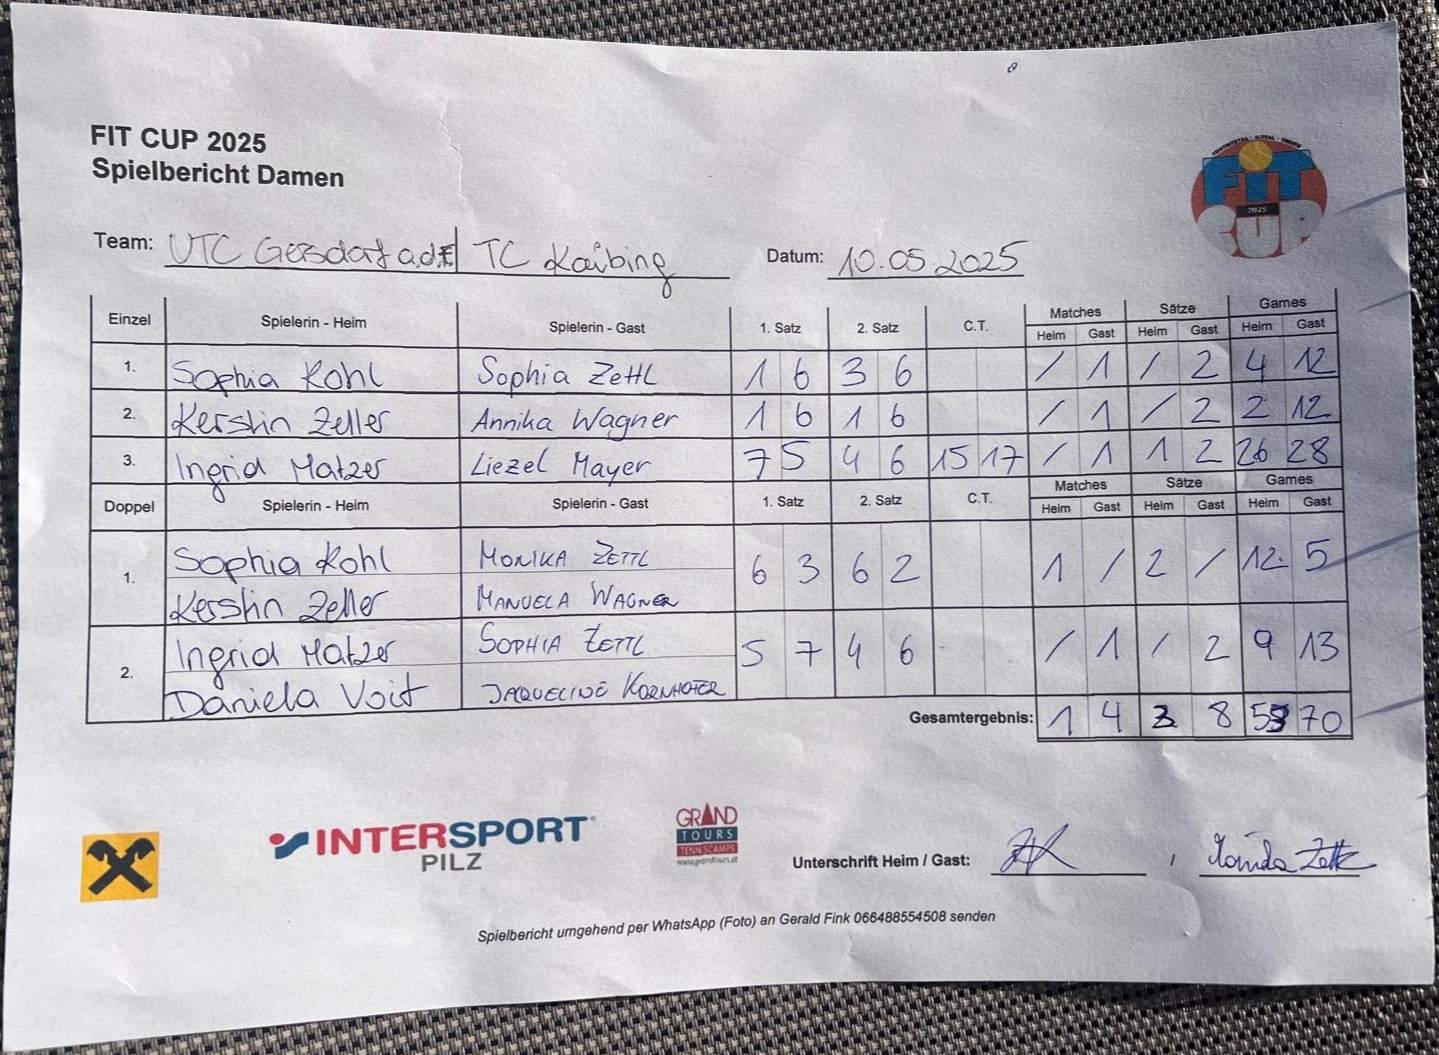 FIT CUP 2025
Spielbericht Damen
FEISTRITZTAL - ILZTAL - CUP
FIT
2025
CUP
Team: UTC Gersdorf a.d.F. | TC Kaibing Datum: 10.05.2025
Einzel Spielerin - Heim Spielerin - Gast 1. Satz 2. Satz C.T. Matches Sätze Games
Heim Gast Heim Gast Heim Gast
1. Sophia Kohl Sophia Zettl 1 6 3 6 / 1 / 2 4 12
2. Kerstin Zeller Annika Wagner 1 6 1 6 / 1 / 2 2 12
3. Ingrid Matzer Liezel Mayer 7 5 4 6 15 17 / 1 1 2 26 28
Doppel Spielerin - Heim Spielerin - Gast 1. Satz 2. Satz C.T. Matches Sätze Games
Heim Gast Heim Gast Heim Gast
1. Sophia Kohl MONIKA ZETTL 6 3 6 2 1 / 2 / 12 5
Kerstin Zeller MANUELA WAGNER
2. Ingrid Matzer SOPHIA ZETTL 5 7 4 6 / 1 / 2 9 13
Daniela Voit JAQUELINE KORNHOFER
Gesamtergebnis: 1 4 3 8 53 70
INTERSPORT
PILZ
GRAND
TOURS
TENNISCAMPS
www.grandtours.at
Unterschrift Heim / Gast: / Monika Zettl
Spielbericht umgehend per WhatsApp (Foto) an Gerald Fink 066488554508 senden